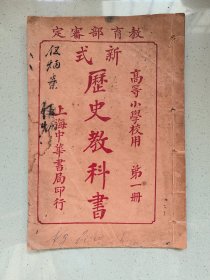 教育部審定
新式
高等小學校用
歷史教科書
第一册
上海中華書局印行